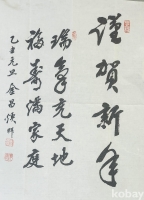 謹賀新年
瑞氣充天地
福壽滿家庭
元旦
kobay